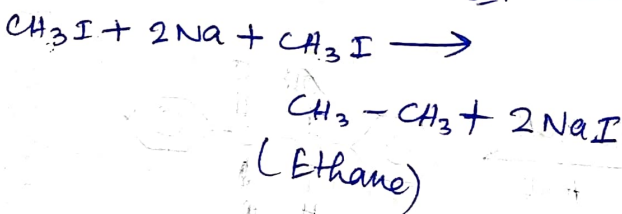 CH3I + 2Na + CH3I ⟶
CH3 - CH3 + 2NaI
(Ethane)